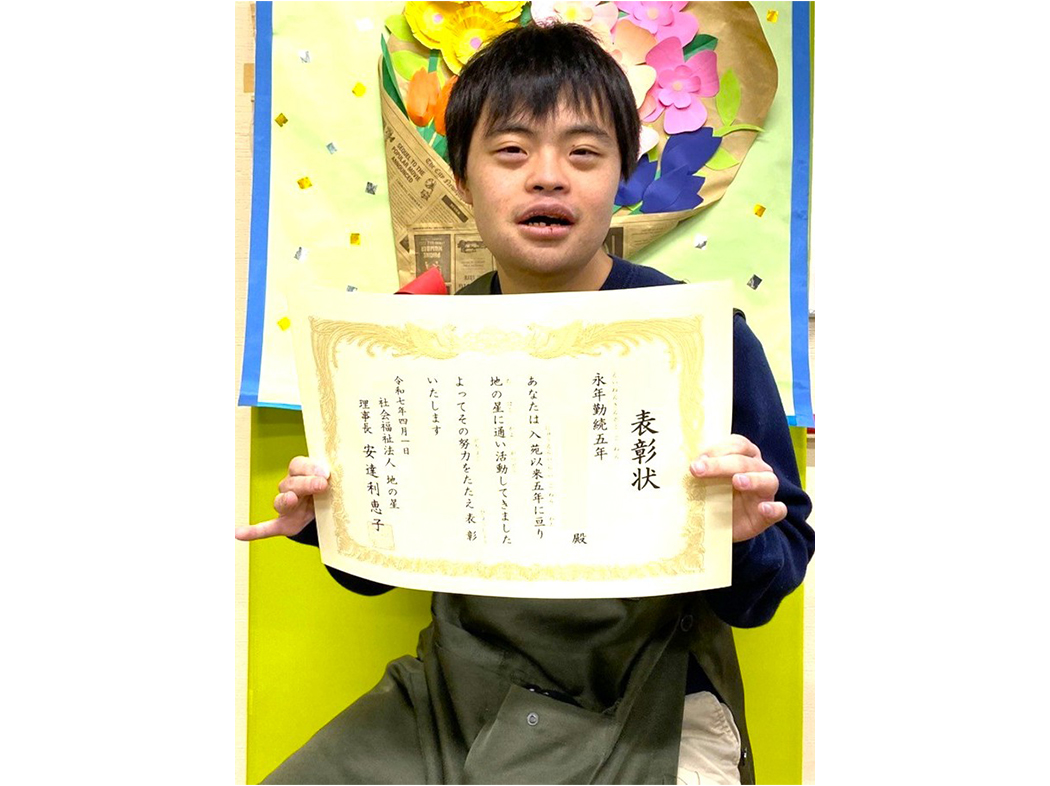 表彰状
永年勤続五年
殿
あなたは入苑以来五年に亘り
地の星に通い活動してきました
よってその努力をたたえ表彰
いたします
令和七年四月一日
社会福祉法人 地の星
理事長 安達利恵子
SEQUEL TO THE
POPULAR MOVIE
ANNOUNCED